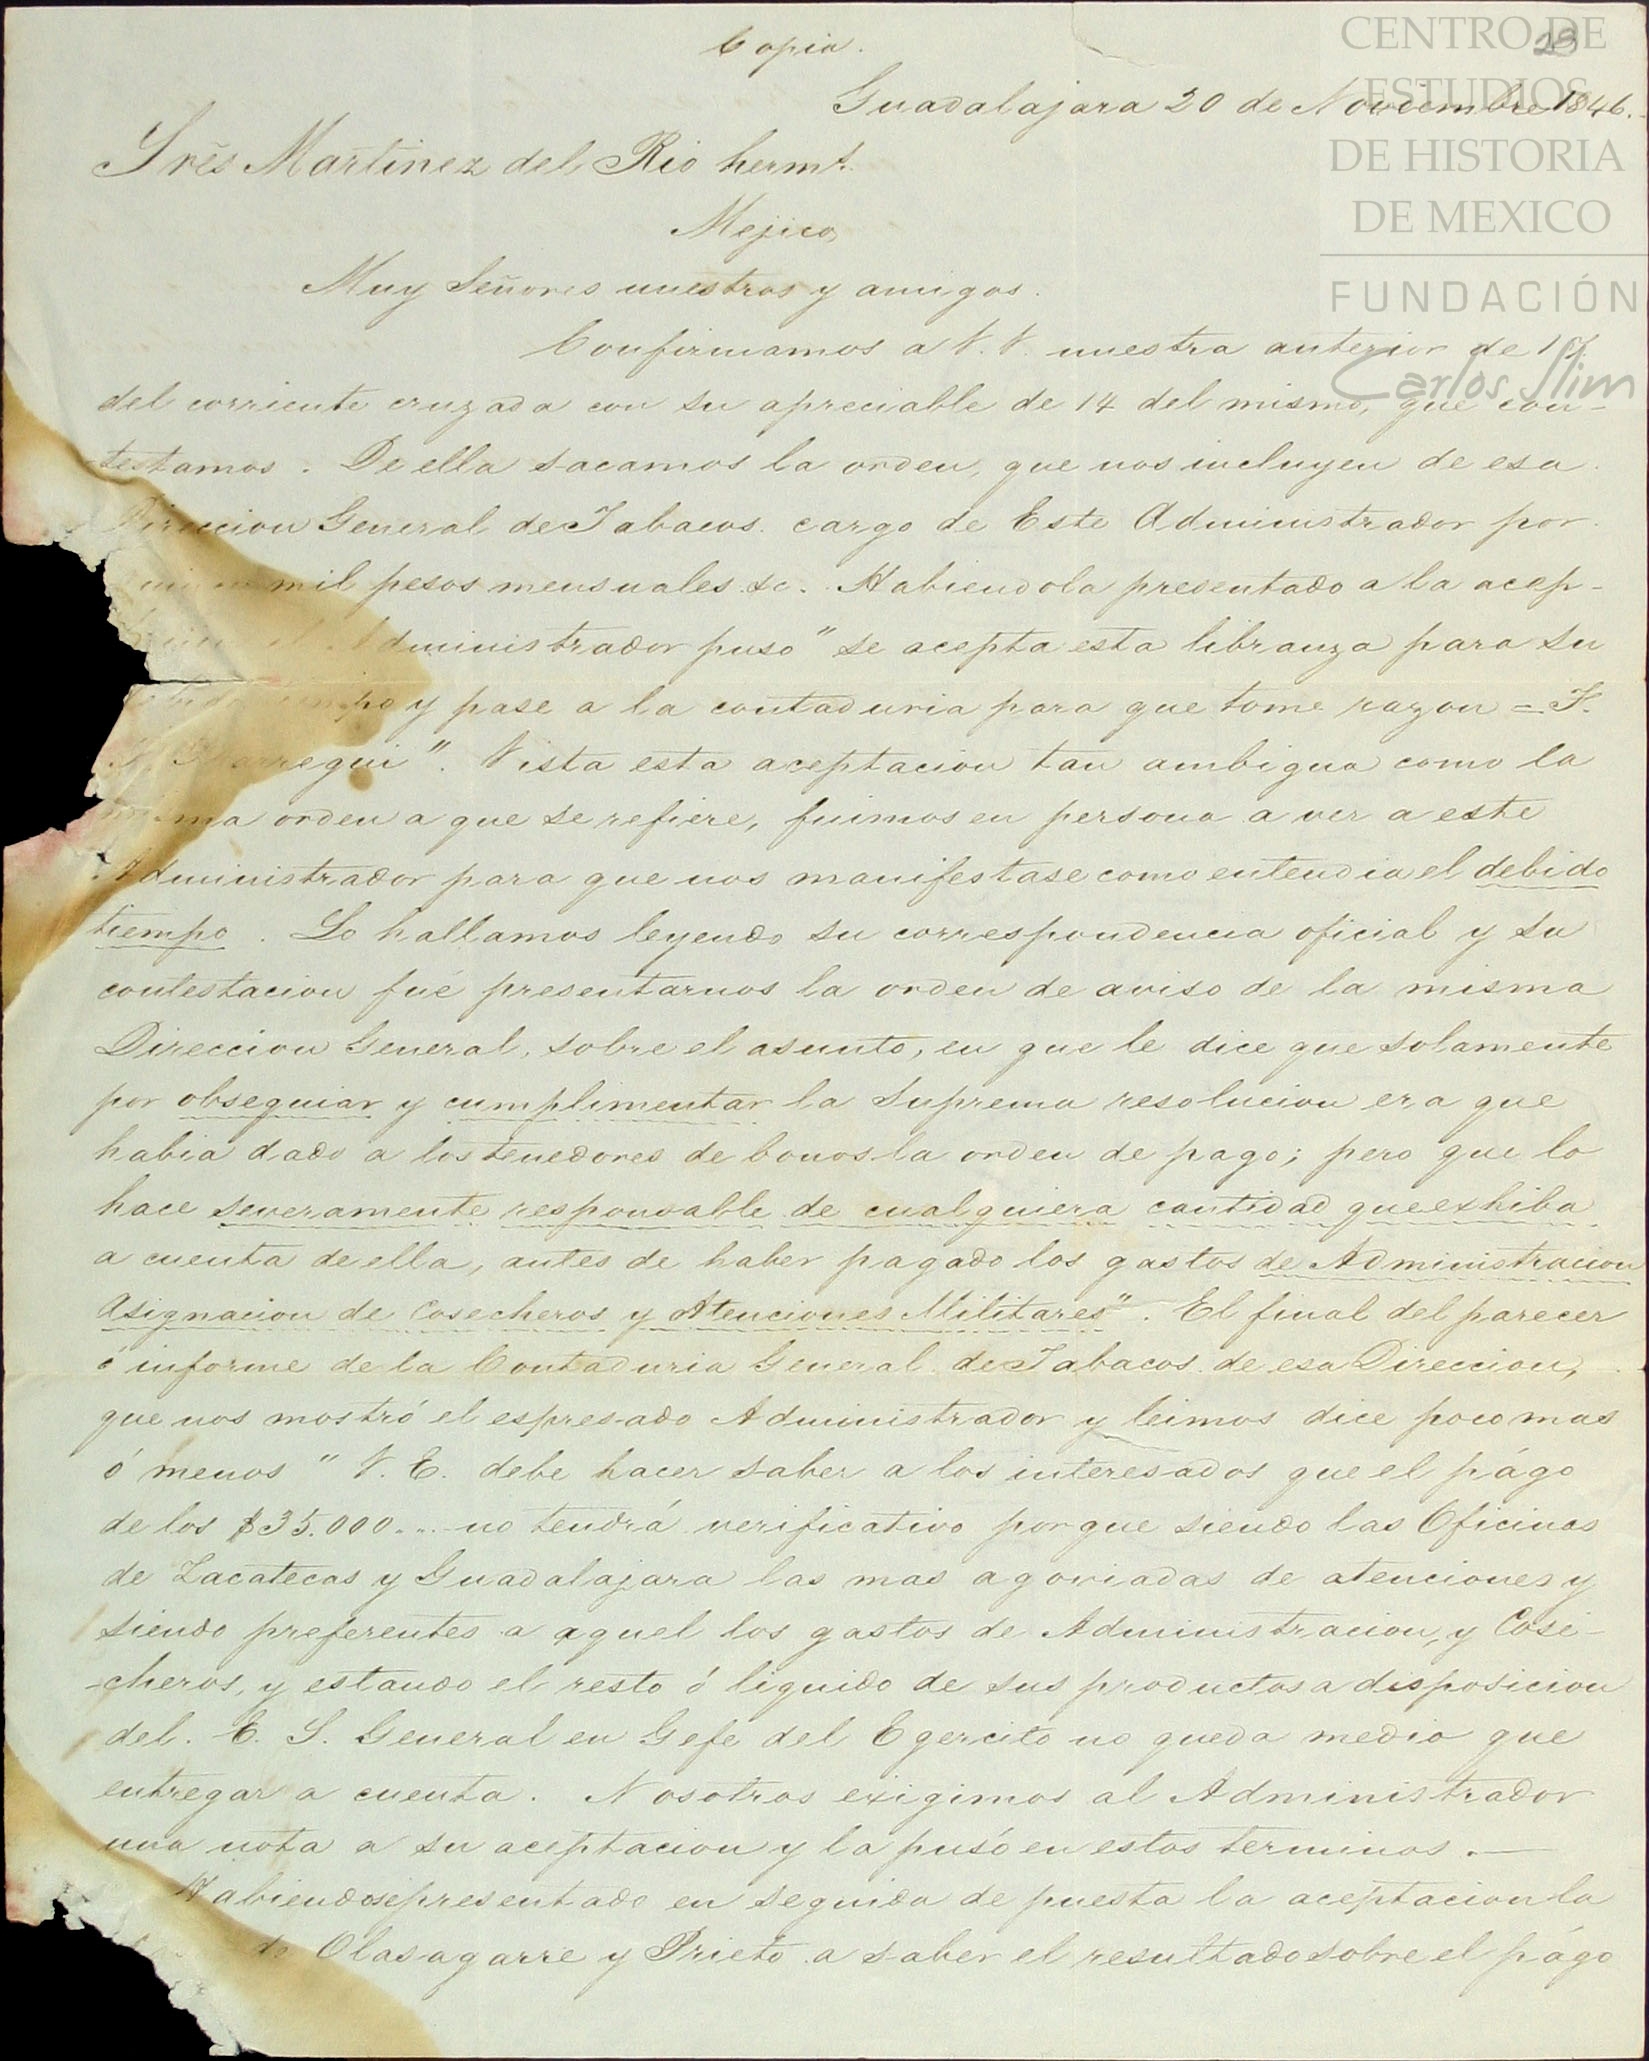 Copia.
23
Guadalajara 20 de Noviembre 1846.
Sres Martinez del Rio herms.
Mejico,
Muy Señores nuestros y amigos.
Confirmamos a V.V. nuestra anterior de 17
del corriente cruzada con su apreciable de 14 del mismo, que con-
-testamos. De ella sacamos la orden, que nos incluyen de esa
Direccion General de Tabacos cargo de Este Administrador por
mil pesos mensuales &c. Habiendola presentado a la acep-
Administrador puso "se acepta esta libranza para su
y pase a la contaduria para que tome razon = F.
Vista esta aceptacion tan ambigua como la
misma orden a que se refiere, fuimos en persona a ver a este
Administrador para que nos manifestase como entendia el debido
tiempo. Lo hallamos leyendo su correspondencia oficial y su
contestacion fué presentarnos la orden de aviso de la misma
Direccion General, sobre el asunto, en que le dice que solamente
por obsequiar y cumplimentar la Suprema resolucion era que
habia dado a los tenedores de bonos la orden de pago; pero que lo
hace severamente responsable de cualquiera cantidad que exhiba
a cuenta de ella, antes de haber pagado los gastos de Administracion
Asignacion de Cosecheros y Atenciones Militares". El final del parecer
é informe de la Contaduria General de Tabacos de esa Direccion,
que nos mostró el espresado Administrador y leimos dice poco mas
ó menos "V.E. debe hacer saber a los interesados que el págo
de los $35.000.... no tendrá verificativo porque siendo las Oficinas
de Zacatecas y Guadalajara las mas agoviadas de atenciones y
siendo preferentes a aquel los gastos de Administracion, y Cose-
-cheros, y estando el resto ó liquido de sus productos a disposicion
del. E. S. General en Gefe del Egercito no queda medio que
entregar a cuenta. Nosotros exigimos al Administrador
una nota a su aceptacion y la pusó en estos terminos.—
Habiendose presentado en seguida de puesta la aceptacion la
de Olasagarre y Prieto a saber el resultado sobre el págo
CENTRO DE
ESTUDIOS
DE HISTORIA
DE MEXICO
FUNDACIÓN
Carlos Slim